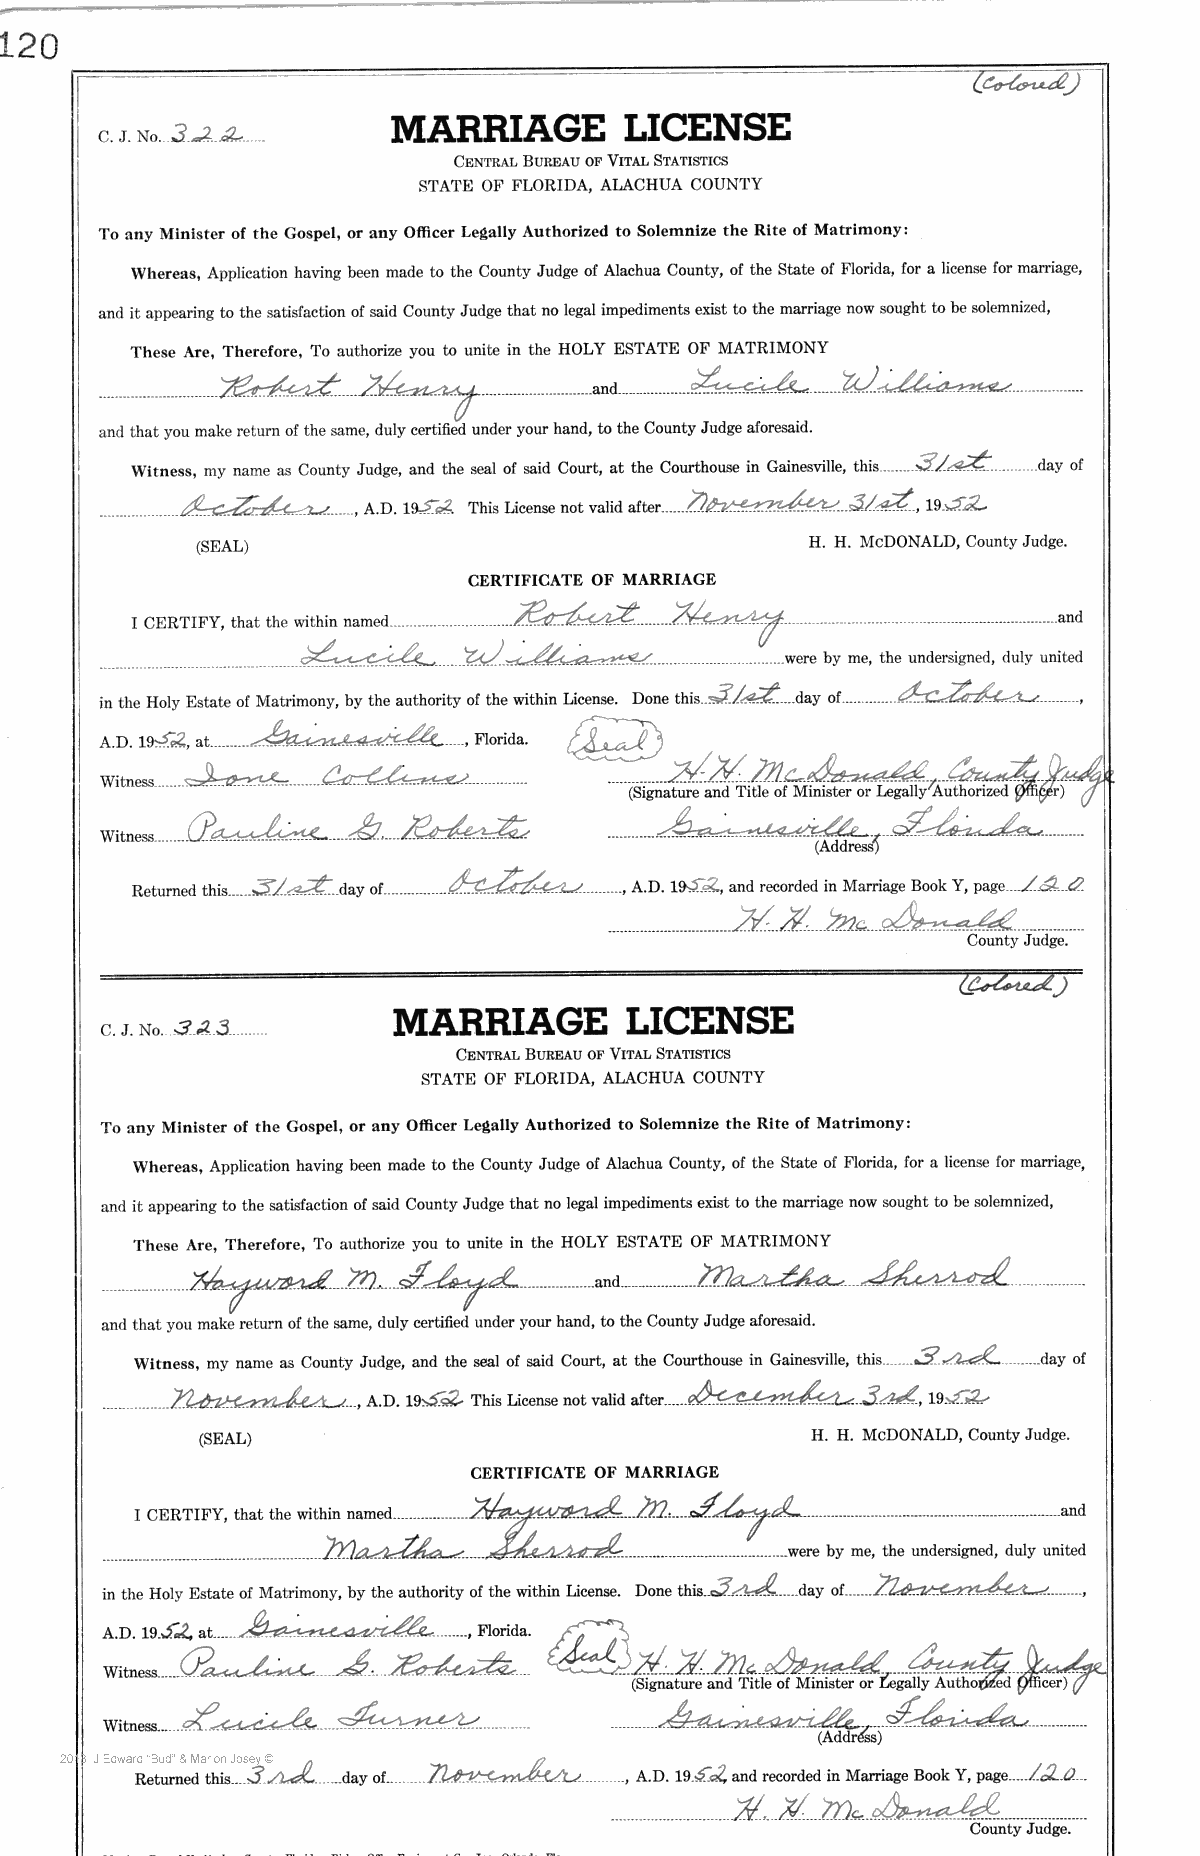 120
(Colored)
C. J. No. 322
MARRIAGE LICENSE
CENTRAL BUREAU OF VITAL STATISTICS
STATE OF FLORIDA, ALACHUA COUNTY
To any Minister of the Gospel, or any Officer Legally Authorized to Solemnize the Rite of Matrimony:
Whereas, Application having been made to the County Judge of Alachua County, of the State of Florida, for a license for marriage,
and it appearing to the satisfaction of said County Judge that no legal impediments exist to the marriage now sought to be solemnized,
These Are, Therefore, To authorize you to unite in the HOLY ESTATE OF MATRIMONY
Robert Henry and Lucile Williams
and that you make return of the same, duly certified under your hand, to the County Judge aforesaid.
Witness, my name as County Judge, and the seal of said Court, at the Courthouse in Gainesville, this 31st day of
October, A.D. 1952 This License not valid after November 31st, 1952
(SEAL) H. H. McDONALD, County Judge.
CERTIFICATE OF MARRIAGE
I CERTIFY, that the within named Robert Henry and
Lucile Williams were by me, the undersigned, duly united
in the Holy Estate of Matrimony, by the authority of the within License. Done this 31st day of October,
A.D. 1952, at Gainesville, Florida. Seal
Witness Ione Collins H. H. McDonald, County Judge
(Signature and Title of Minister or Legally Authorized Officer)
Witness Pauline G. Roberts Gainesville, Florida
(Address)
Returned this 31st day of October, A.D. 1952, and recorded in Marriage Book Y, page 120
H. H. McDonald
County Judge.
(Colored)
C. J. No. 323
MARRIAGE LICENSE
CENTRAL BUREAU OF VITAL STATISTICS
STATE OF FLORIDA, ALACHUA COUNTY
To any Minister of the Gospel, or any Officer Legally Authorized to Solemnize the Rite of Matrimony:
Whereas, Application having been made to the County Judge of Alachua County, of the State of Florida, for a license for marriage,
and it appearing to the satisfaction of said County Judge that no legal impediments exist to the marriage now sought to be solemnized,
These Are, Therefore, To authorize you to unite in the HOLY ESTATE OF MATRIMONY
Hayword M. Floyd and Martha Sherrod
and that you make return of the same, duly certified under your hand, to the County Judge aforesaid.
Witness, my name as County Judge, and the seal of said Court, at the Courthouse in Gainesville, this 3rd day of
November, A.D. 1952 This License not valid after December 3rd, 1952
(SEAL) H. H. McDONALD, County Judge.
CERTIFICATE OF MARRIAGE
I CERTIFY, that the within named Hayword M. Floyd and
Martha Sherrod were by me, the undersigned, duly united
in the Holy Estate of Matrimony, by the authority of the within License. Done this 3rd day of November,
A.D. 1952, at Gainesville, Florida.
Witness Pauline G. Roberts Seal H. H. McDonald, County Judge
(Signature and Title of Minister or Legally Authorized Officer)
Witness Lucile Turner Gainesville, Florida
(Address)
J Edward "Bud" & Marion Josey ©
Returned this 3rd day of November, A.D. 1952, and recorded in Marriage Book Y, page 120
H. H. McDonald
County Judge.